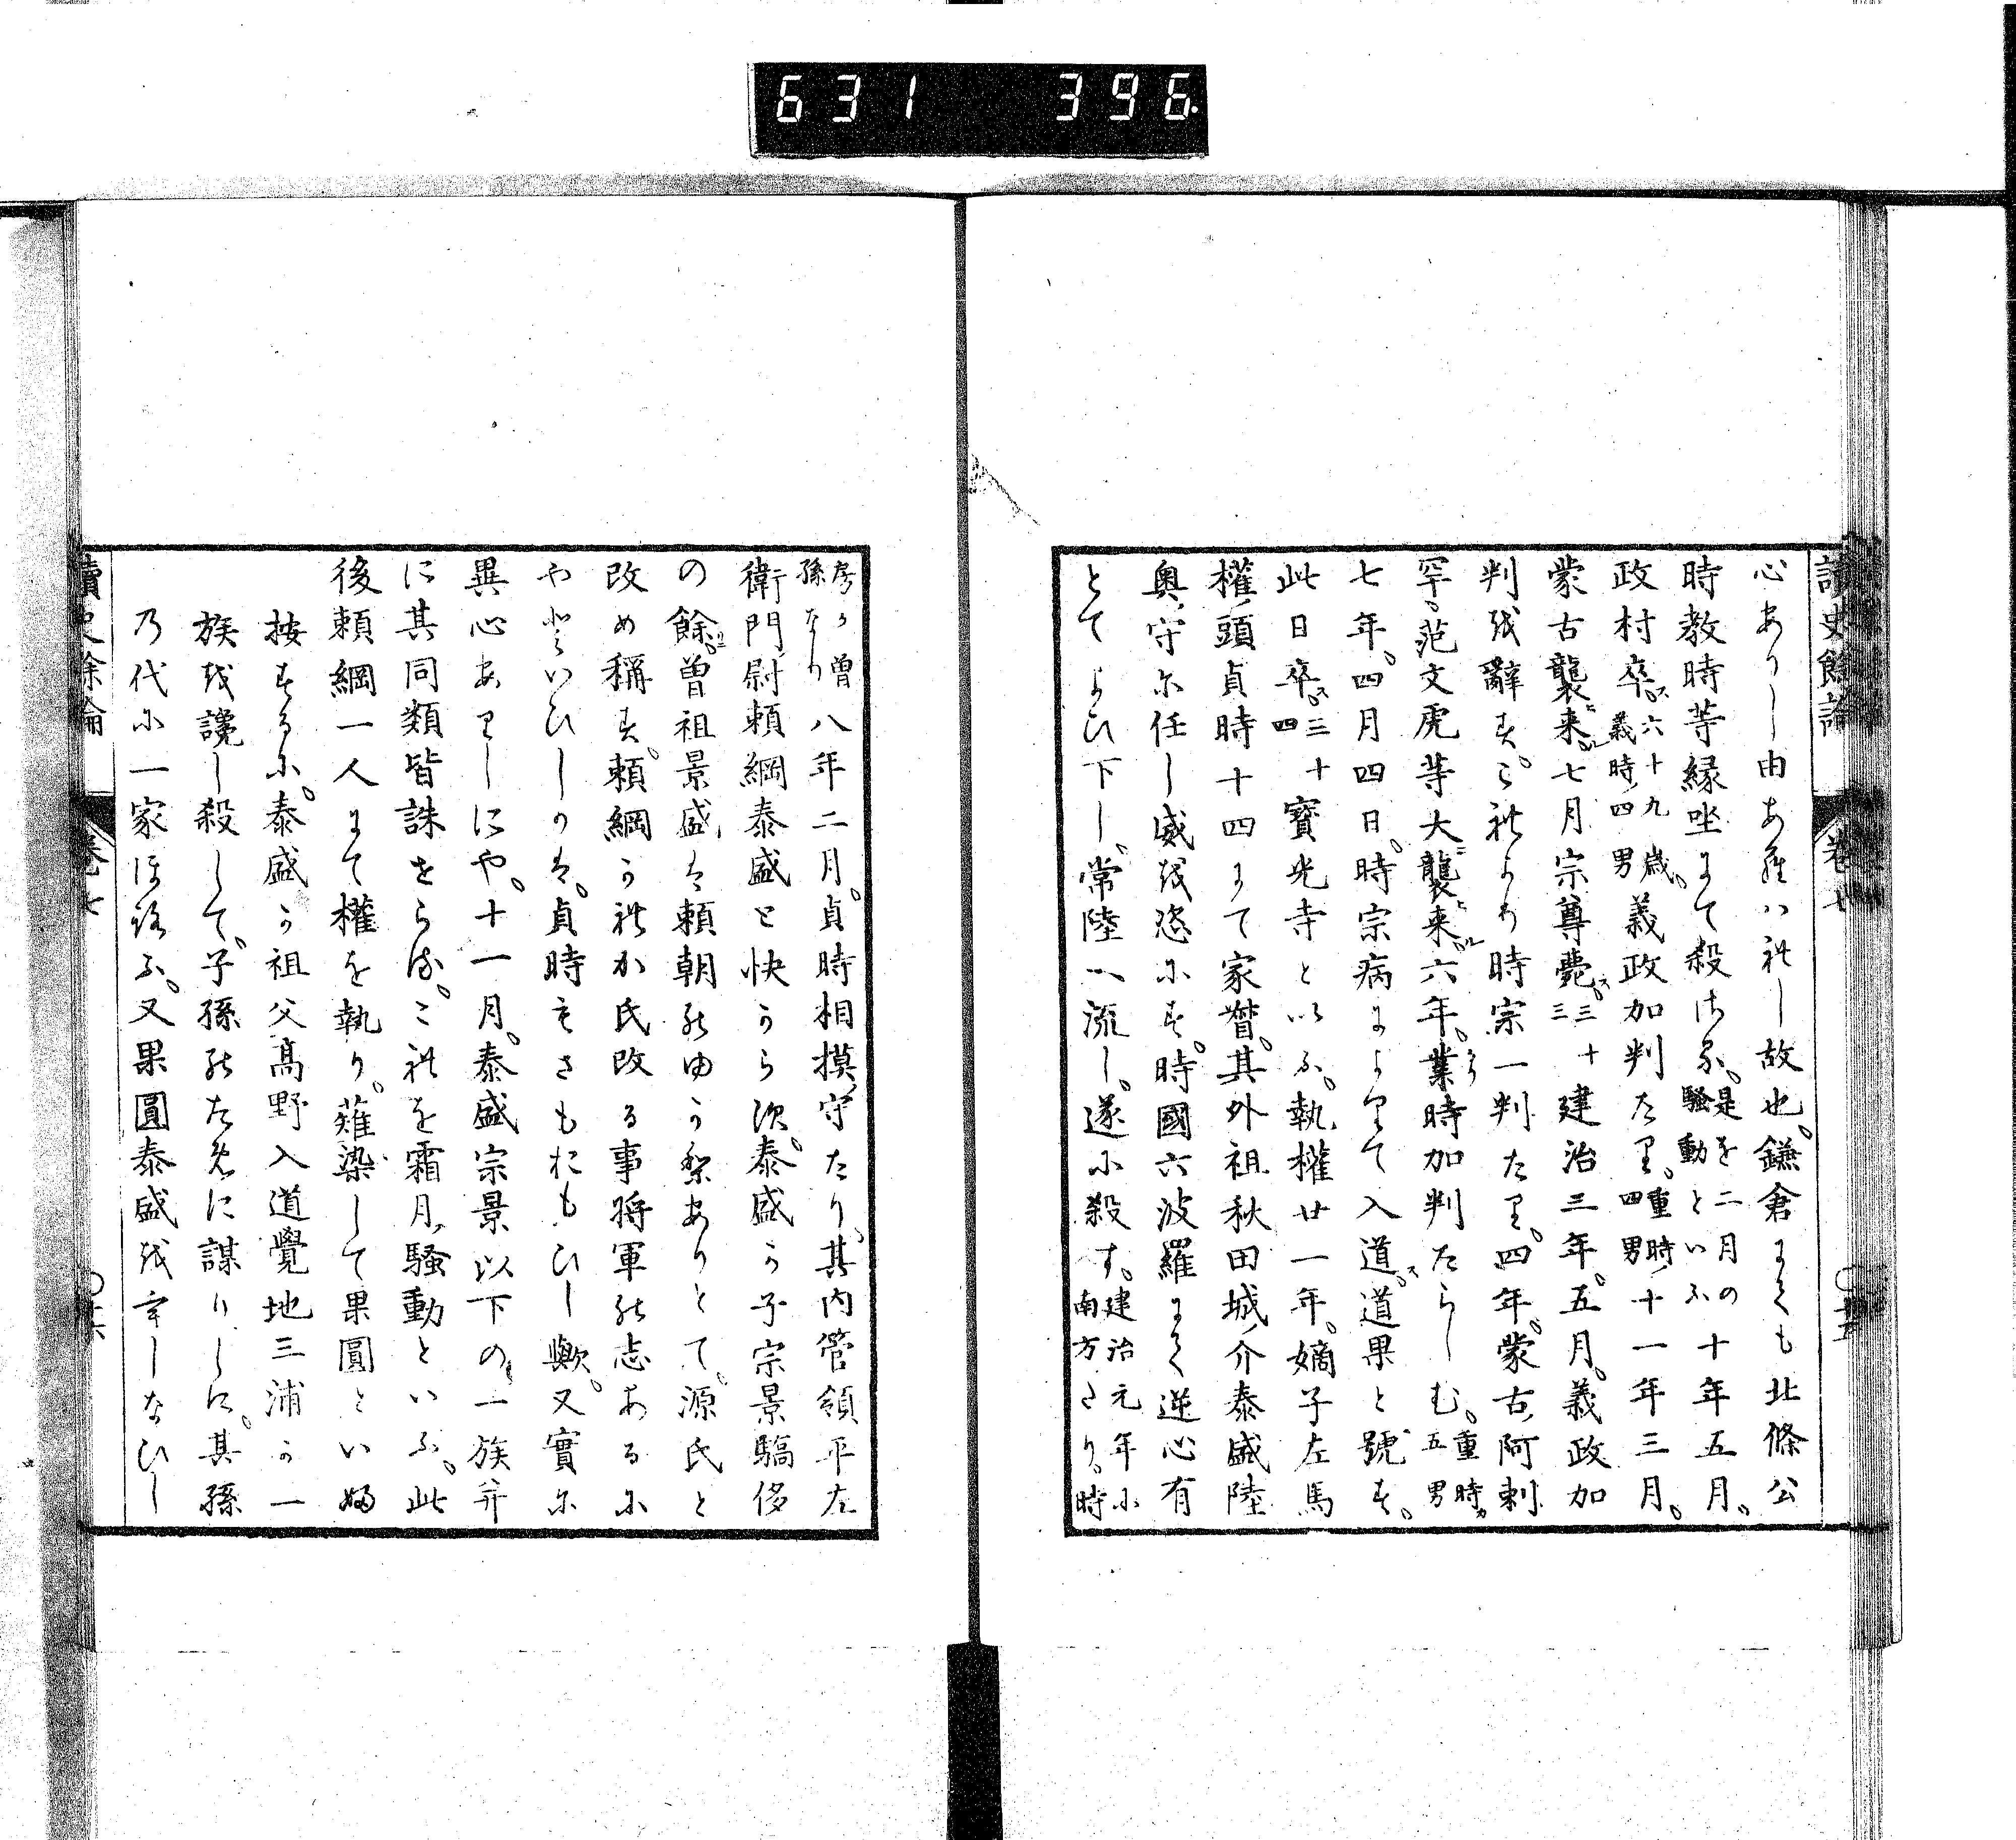 631 396.
讀史餘論 卷七
心ありし由あらはれし故也。鎌倉にても北條公
時教時等縁坐にて殺さる。是を二月の騒動といふ十年五月。
政村卒ス。六十九歳。義時ノ四男義政加判たり。重時ノ四男十一年三月。
蒙古襲来ル。七月宗尊薨ス。三十三建治三年。五月。義政加
判を辭す。これより時宗一判たり。四年。蒙古ノ阿剌
罕、范文虎等大ニ襲来ル。六年。業時加判たらしむ。重時ノ五男
七年。四月四日。時宗病によりて入道ス。道果と號す。
此日卒ス。三十四寳光寺といふ。執權廿一年。嫡子左馬
權ノ頭貞時十四にて家督。其外祖秋田城ノ介泰盛陸
奥ノ守に任し威を恣にす。時國六波羅にて逆心有
とてよひ下し。常陸へ流し。遂に殺す。建治元年に南方たり。時
房か曽孫なり八年二月。貞時相摸ノ守たり。其内管領平左
衛門ノ尉頼綱泰盛と快からす。泰盛か子宗景驕侈
の餘ニ。曽祖景盛は頼朝のゆかりありとて。源氏と
改め稱す。頼綱かれか氏改る事将軍の志あるに
やといひしかは。貞時もさもおもひし歟。又實に
異心ありしにや。十一月。泰盛宗景以下の。一族并
に其同類皆誅せらる。これを霜月ノ騒動といふ。此
後頼綱一人にて權を執り。薙染して果圓といふ
按するに。泰盛か祖父高野入道覺地三浦か一
族を讒し殺して。子孫のために謀りしに。其孫
乃代に一家ほろふ。又果圓泰盛を害しなひし
讀史餘論 卷七